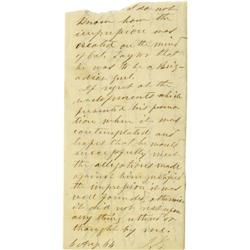 I do not
know how the
impression was
created on the mind
of Col. Taylor that
he was to be a Brig-
adier Genl.
I regret at the
which
prevented his promo-
tion when it was
contemplated and
hopes that he would
successfully meet
the allegations made
against him justified
the impression it was
well founded, otherwise
it did not rest upon
any thing written or
thought by me.
6 Aug 64